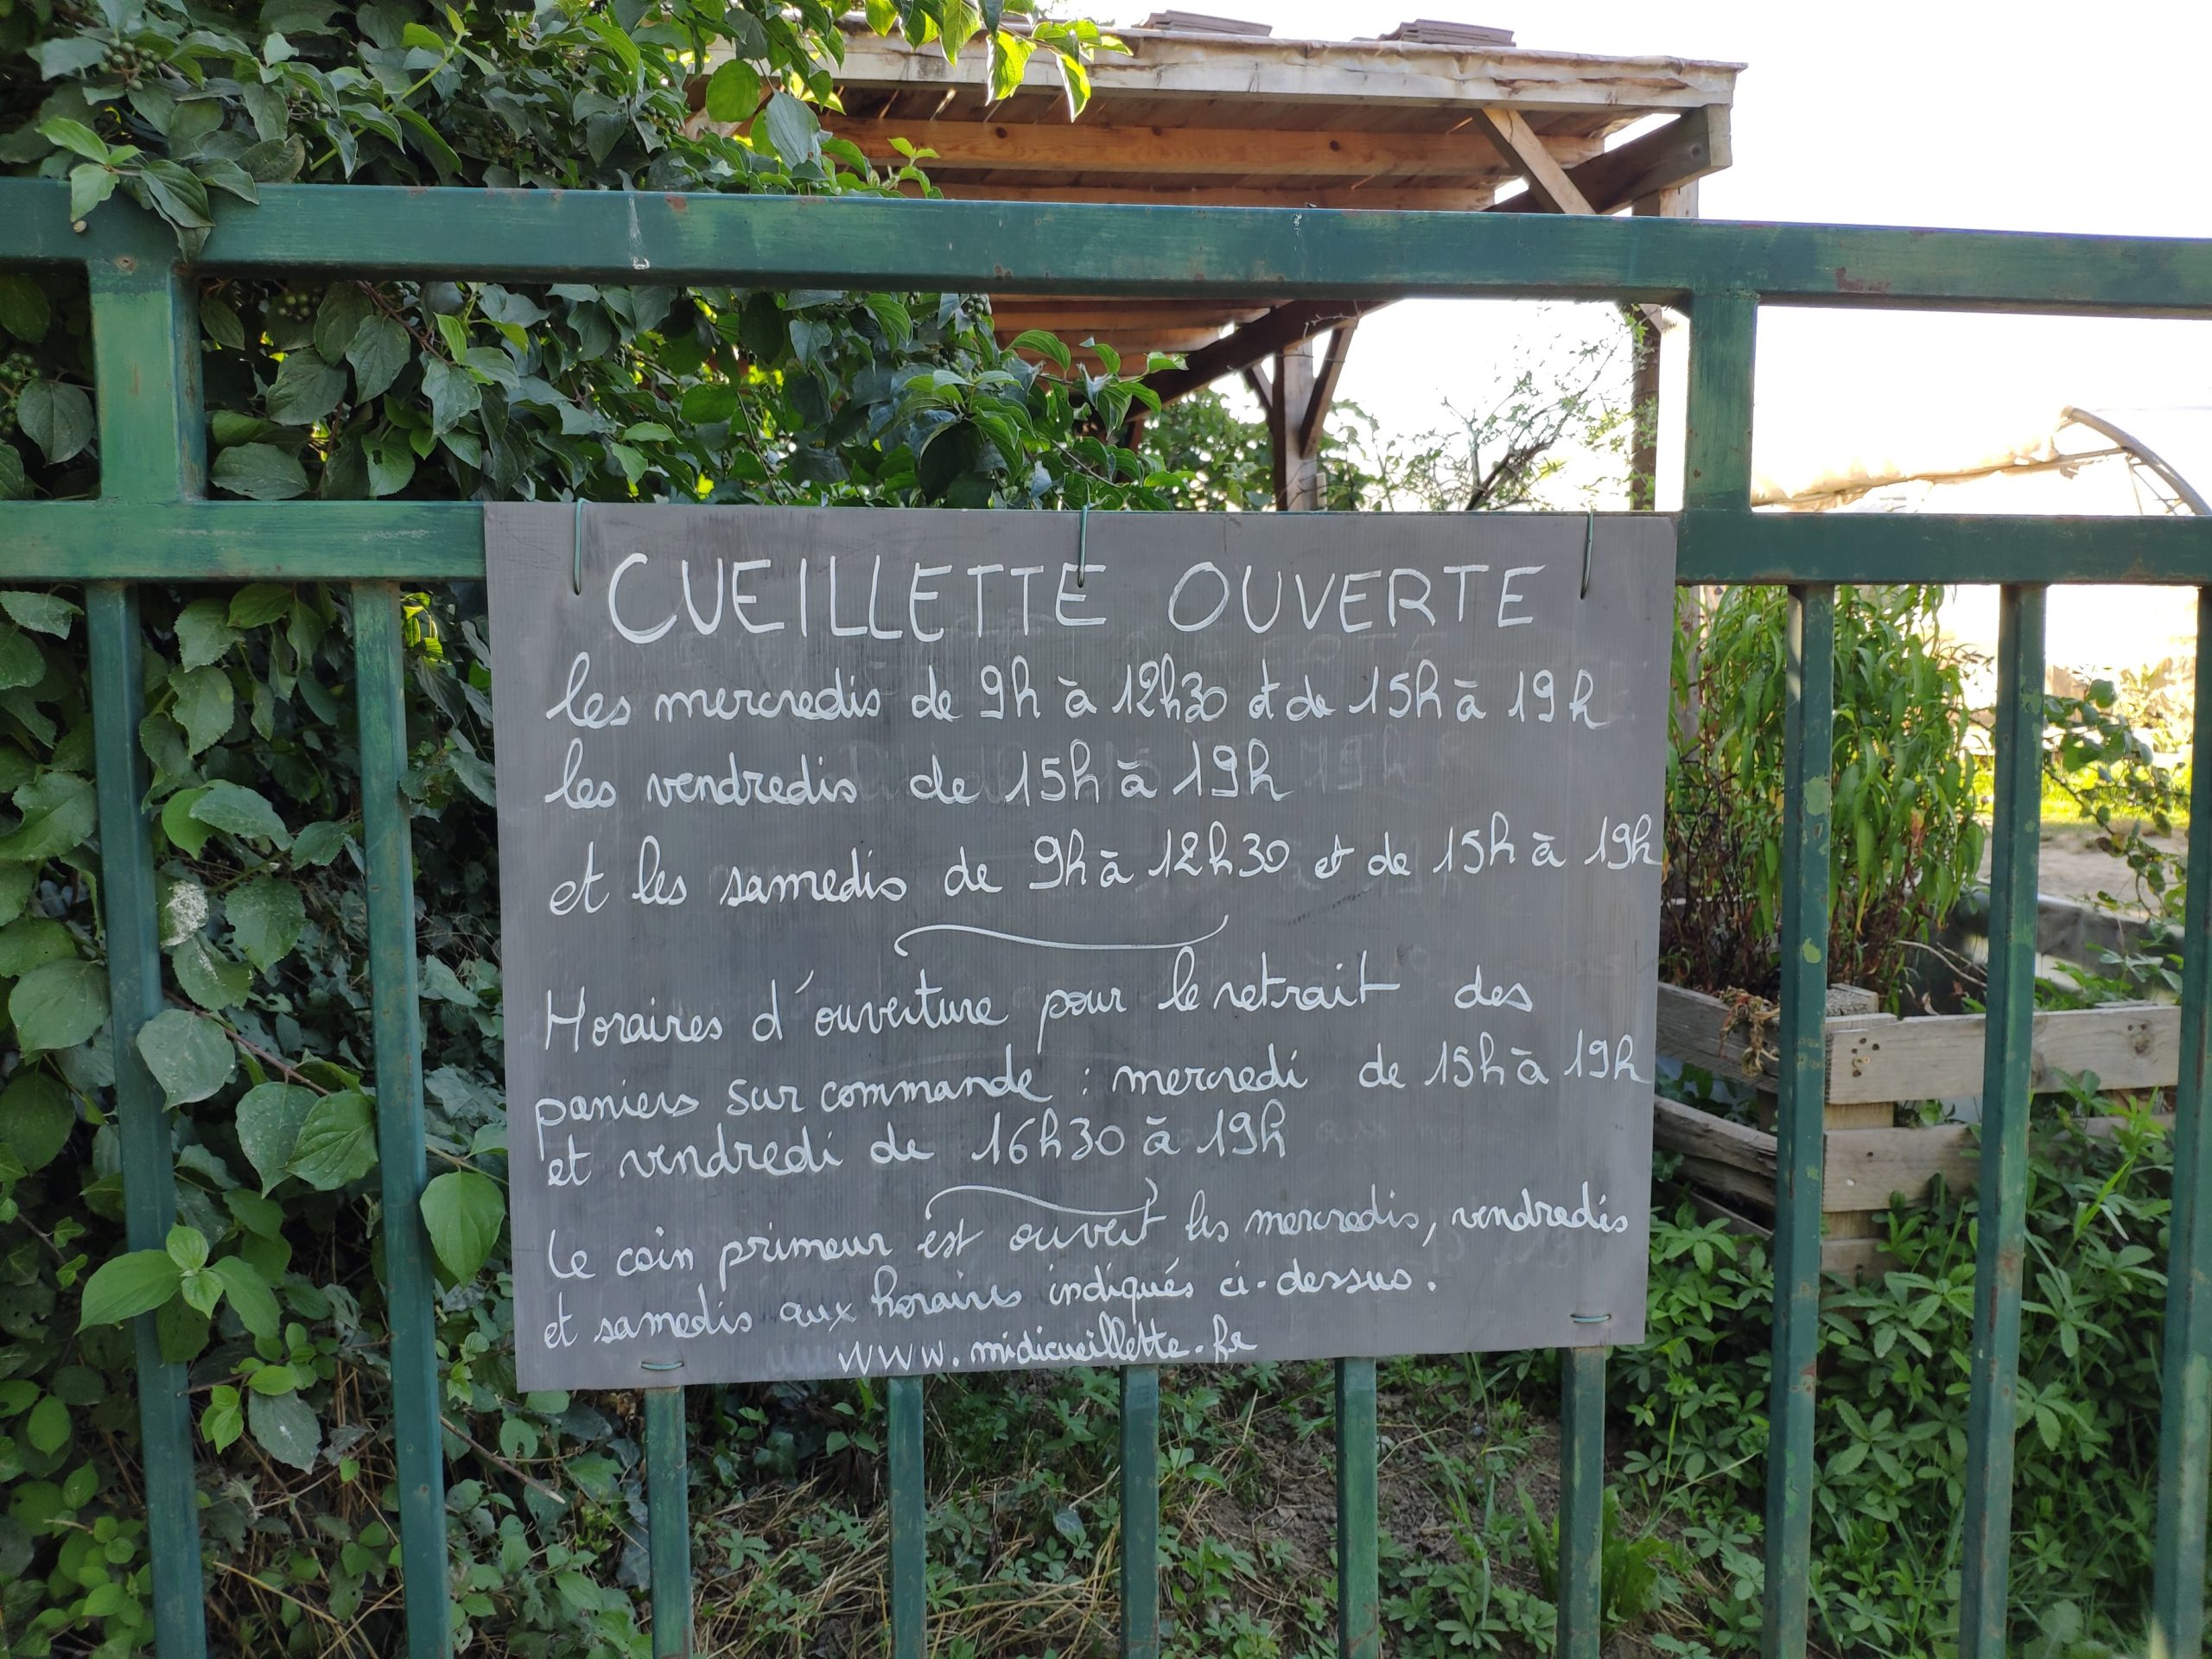 CUEILLETTE OUVERTE
les mercredis de 9h à 12h30 et de 15h à 19h
les vendredis de 15h à 19h
et les samedis de 9h à 12h30 et de 15h à 19h
Horaires d'ouverture pour le retrait des
paniers sur commande : mercredi de 15h à 19h
et vendredi de 16h30 à 19h
Le coin primeur est ouvert les mercredis, vendredis
et samedis aux horaires indiqués ci-dessus.
www.midicueillette.fr